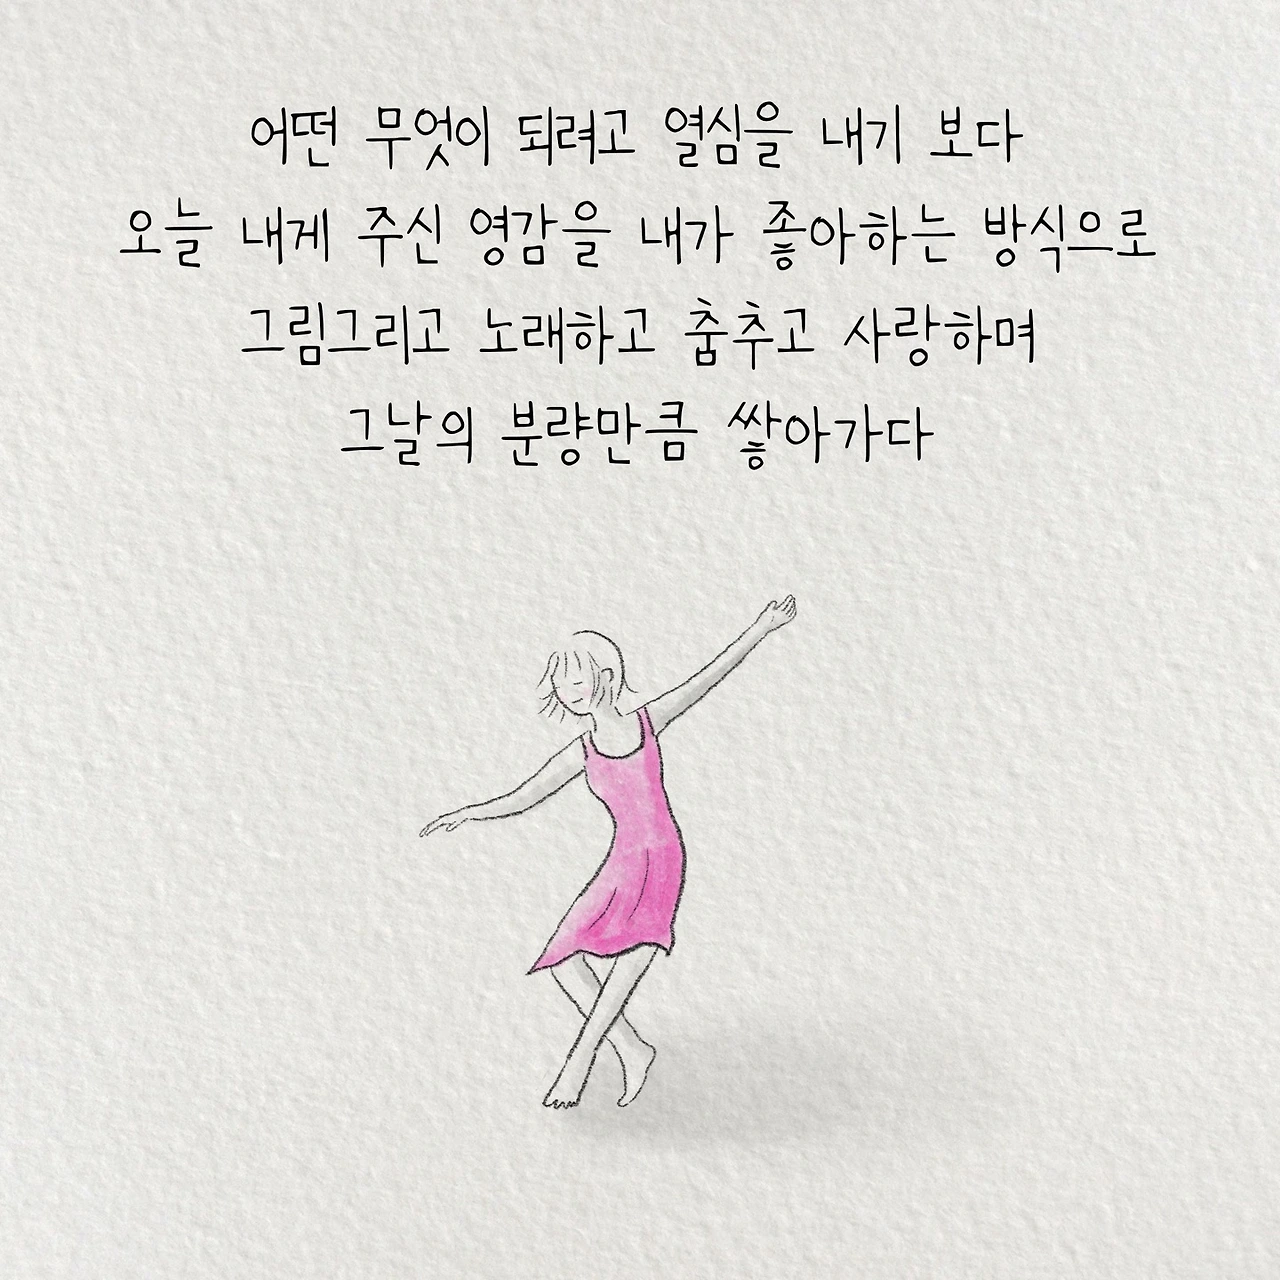 어떤 무엇이 되려고 열심을 내기 보다
오늘 내게 주신 영감을 내가 좋아하는 방식으로
그림그리고 노래하고 춤추고 사랑하며
그날의 분량만큼 쌓아가다